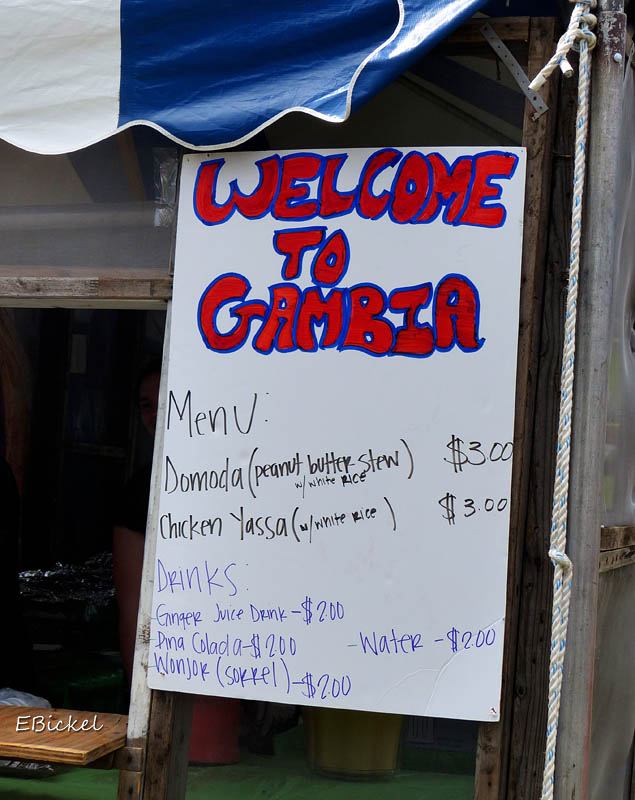 WELCOME
TO
GAMBIA
Menu:
Domoda (peanut butter stew) $3.00
w/ white rice
Chicken Yassa (w/ white rice) $3.00
Drinks:
Ginger Juice Drink - $2.00
Pina Colada - $2.00 - Water - $2.00
Wonjor (sorrel) - $2.00
EBickel